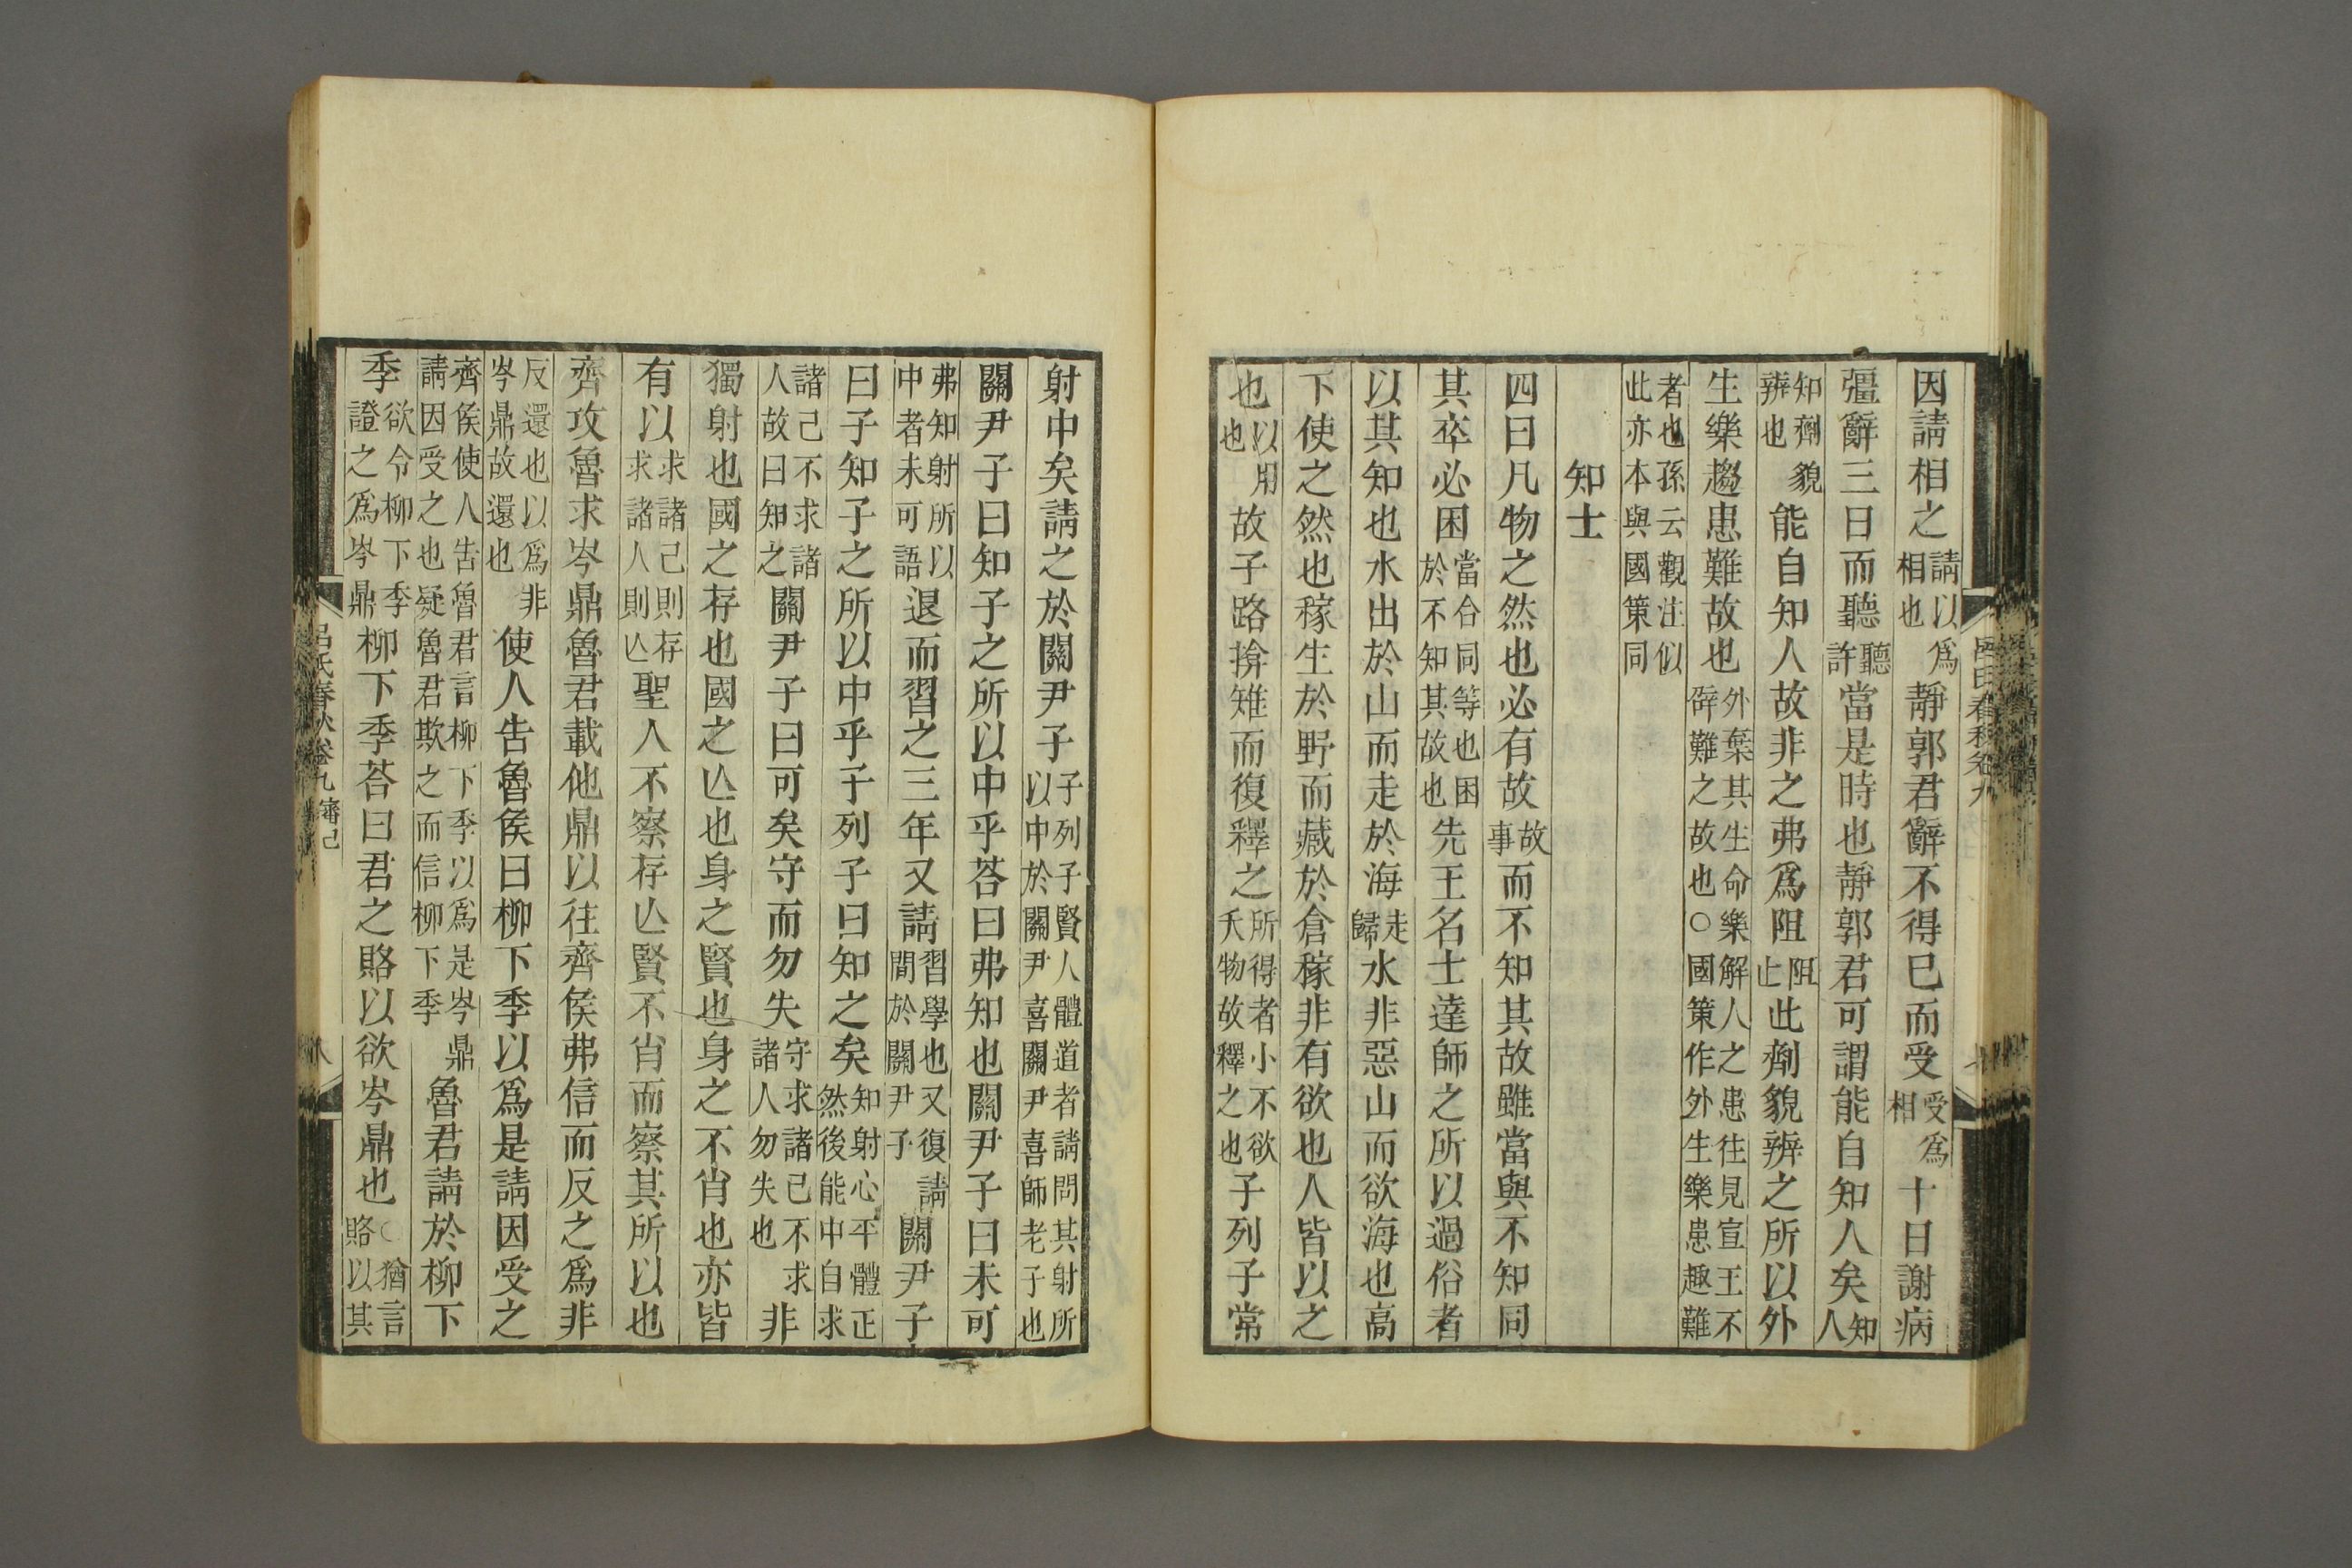 因請相之請以爲相也靜郭君辭不得已而受受爲相十日謝病
彊辭三日而聽聽許當是時也靜郭君可謂能自知人矣知人
知劑貌辨也能自知人故非之弗爲阻阻止此劑貌辨之所以外
生樂趨患難故也外棄其生命樂解人之患往見宣王不辟難之故也○國策作外生樂患趣難
者也孫云觀注似此亦本與國策同
知士
四曰凡物之然也必有故故事而不知其故雖當與不知同
其卒必困當合同等也困於不知其故也先王名士達師之所以過俗者
以其知也水出於山而走於海走歸水非惡山而欲海也高
下使之然也稼生於野而藏於倉稼非有欲也人皆以之
也以用也故子路揜雉而復釋之所得者小不欲夭物故釋之也子列子常
呂氏春秋卷九
射中矣請之於關尹子子列子賢人體道者請問其射所以中於關尹喜關尹喜師老子也
關尹子曰知子之所以中乎荅曰弗知也關尹子曰未可
弗知射所以中者未可語退而習之三年又請習學也又復請間於關尹子關尹子
曰子知子之所以中乎子列子曰知之矣知射心平體正然後能中自求
諸己不求諸人故曰知之關尹子曰可矣守而勿失守求諸己不求諸人勿失也非
獨射也國之存也國之亾也身之賢也身之不肖也亦皆
有以求諸己則存求諸人則亾聖人不察存亾賢不肖而察其所以也
齊攻魯求岑鼎魯君載他鼎以往齊侯弗信而反之爲非
反還也以爲非岑鼎故還也使人告魯侯曰柳下季以爲是請因受之
齊侯使人告魯君言柳下季以爲是岑鼎請因受之也疑魯君欺之而信柳下季魯君請於柳下
季欲令柳下季證之爲岑鼎柳下季荅曰君之賂以欲岑鼎也○猶言賂以其
呂氏春秋卷九 審己
八